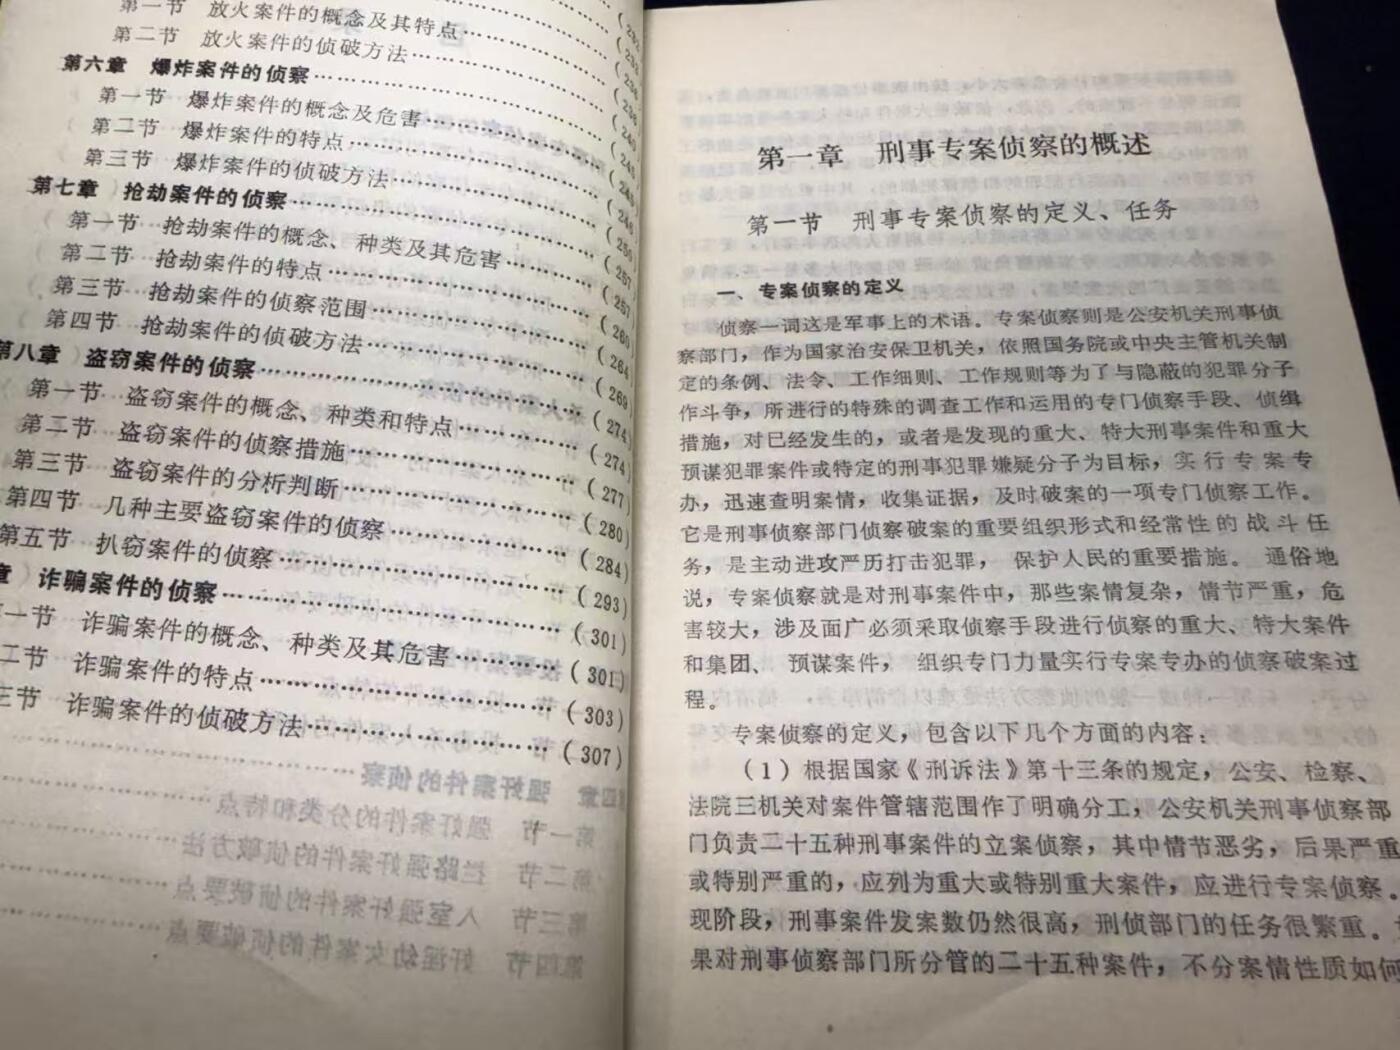 第一节 放火案件的概念及其特点……………(232)
第二节 放火案件的侦破方法……………
第六章 爆炸案件的侦察……………
第一节 爆炸案件的概念及危害……………
第二节 爆炸案件的特点……………
第三节 爆炸案件的侦破方法……………
第七章 抢劫案件的侦察……………(246)
第一节 抢劫案件的概念、种类及其危害……………(250)
第二节 抢劫案件的特点……………(257)
第三节 抢劫案件的侦察范围……………(257)
第四节 抢劫案件的侦破方法……………(260)
第八章 盗窃案件的侦察……………(264)
第一节 盗窃案件的概念、种类和特点……………(269)
第二节 盗窃案件的侦察措施……………(274)
第三节 盗窃案件的分析判断……………(277)
第四节 几种主要盗窃案件的侦察……………(280)
第五节 扒窃案件的侦察……………(284)
章 诈骗案件的侦察……………(293)
第一节 诈骗案件的概念、种类及其危害……………(301)
二节 诈骗案件的特点……………(303)
三节 诈骗案件的侦破方法……………(307)
第一章 刑事专案侦察的概述
第一节 刑事专案侦察的定义、任务
一 专案侦察的定义
侦察一词这是军事上的术语。专案侦察则是公安机关刑事侦
察部门，作为国家治安保卫机关，依照国务院或中央主管机关制
定的条例、法令、工作细则、工作规则等为了与隐蔽的犯罪分子
作斗争，所进行的特殊的调查工作和运用的专门侦察手段、侦缉
措施，对已经发生的，或者是发现的重大、特大刑事案件和重大
预谋犯罪案件或特定的刑事犯罪嫌疑分子为目标，实行专案专
办，迅速查明案情，收集证据，及时破案的一项专门侦察工作。
它是刑事侦察部门侦察破案的重要组织形式和经常性的战斗任
务，是主动进攻严历打击犯罪， 保护人民的重要措施。 通俗地
说，专案侦察就是对刑事案件中，那些案情复杂，情节严重，危
害较大，涉及面广必须采取侦察手段进行侦察的重大、特大案件
和集团、 预谋案件， 组织专门力量实行专案专办的侦察破案过
程。
专案侦察的定义，包含以下几个方面的内容：
（1）根据国家《刑诉法》第十三条的规定，公安、检察、
法院三机关对案件管辖范围作了明确分工，公安机关刑事侦察部
门负责二十五种刑事案件的立案侦察，其中情节恶劣，后果严重
或特别严重的，应列为重大或特别重大案件，应进行专案侦察。
现阶段，刑事案件发案数仍然很高，刑侦部门的任务很繁重。
果对刑事侦察部门所分管的二十五种案件，不分案情性质如何